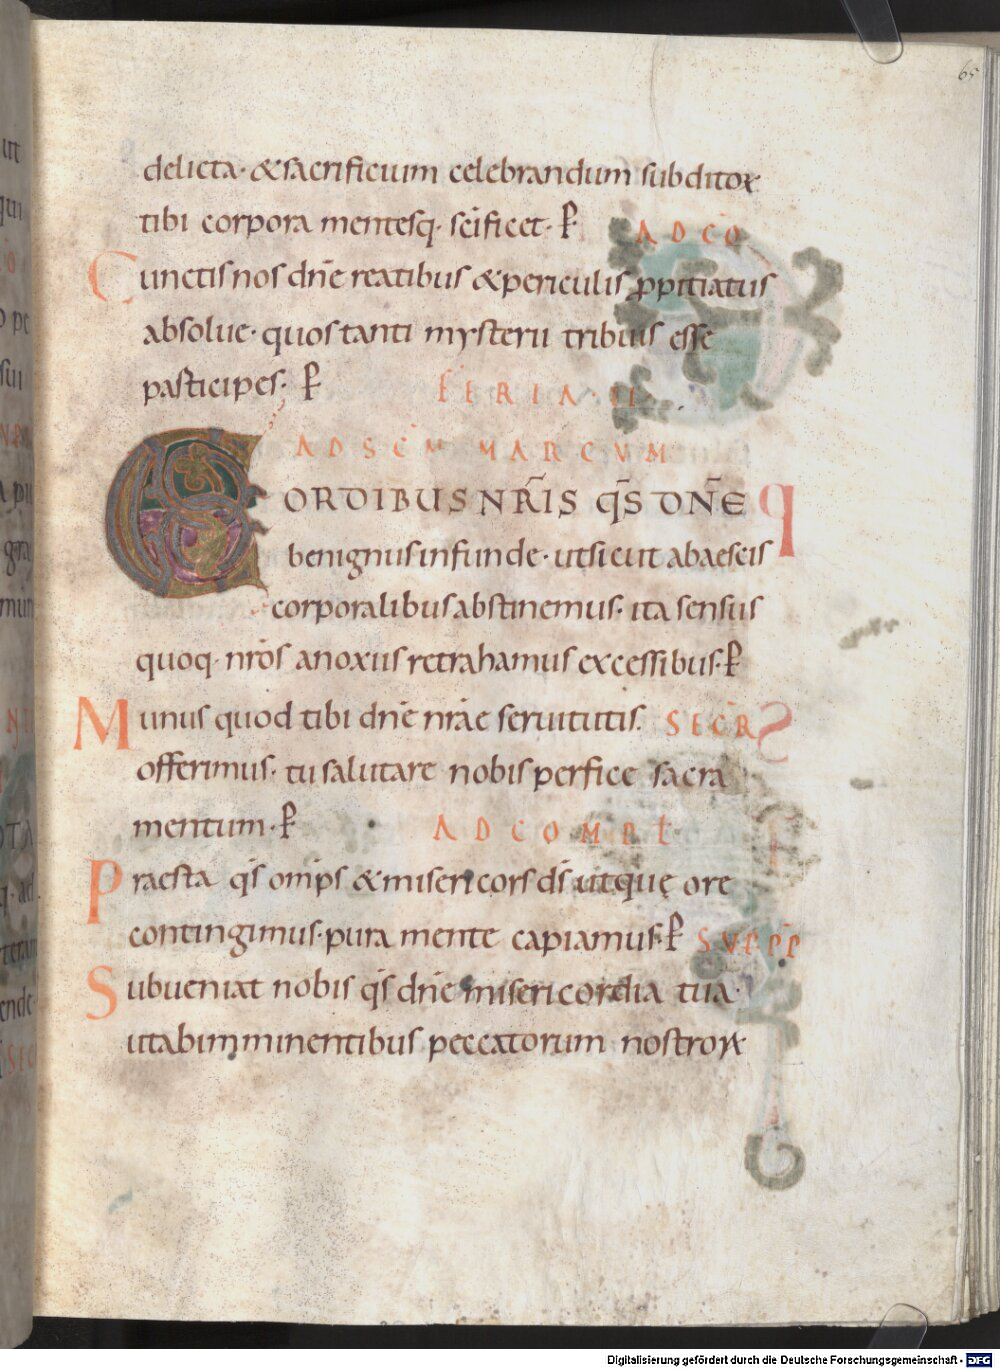 65
delicta· &sacrificium celebrandum subditoꝝ
tibi corpora mentesq· sc̄ificet· P̄ AD CO
Cunctis nos dn̄e reatibus & periculis ꝓpitiatus
absolue· quos tanti mysterii tribuis esse
participes· P̄ FERIA · II
AD SC̄M MARCVM
CORDIBUS NR̄IS QS̄ DN̄E
benignus infunde· ut sicut ab aescis
corporalibus abstinemus· ita sensus
quoq· nr̄os a noxiis retrahamus excessibus· P̄
Munus quod tibi dn̄e nr̄ae seruitutis· SECR̄
offerimus· tu salutare nobis perfice sacra
mentum· P̄ AD COMPL
Praesta qs̄ om̄ps & misericors ds̄ ut quę ore
contingimus· pura mente capiamus· P̄ SVP PP̄
Subueniat nobis qs̄ dn̄e misericordia tua·
ut ab imminentibus peccatorum nostroꝝ
Digitalisierung gefördert durch die Deutsche Forschungsgemeinschaft - DFG